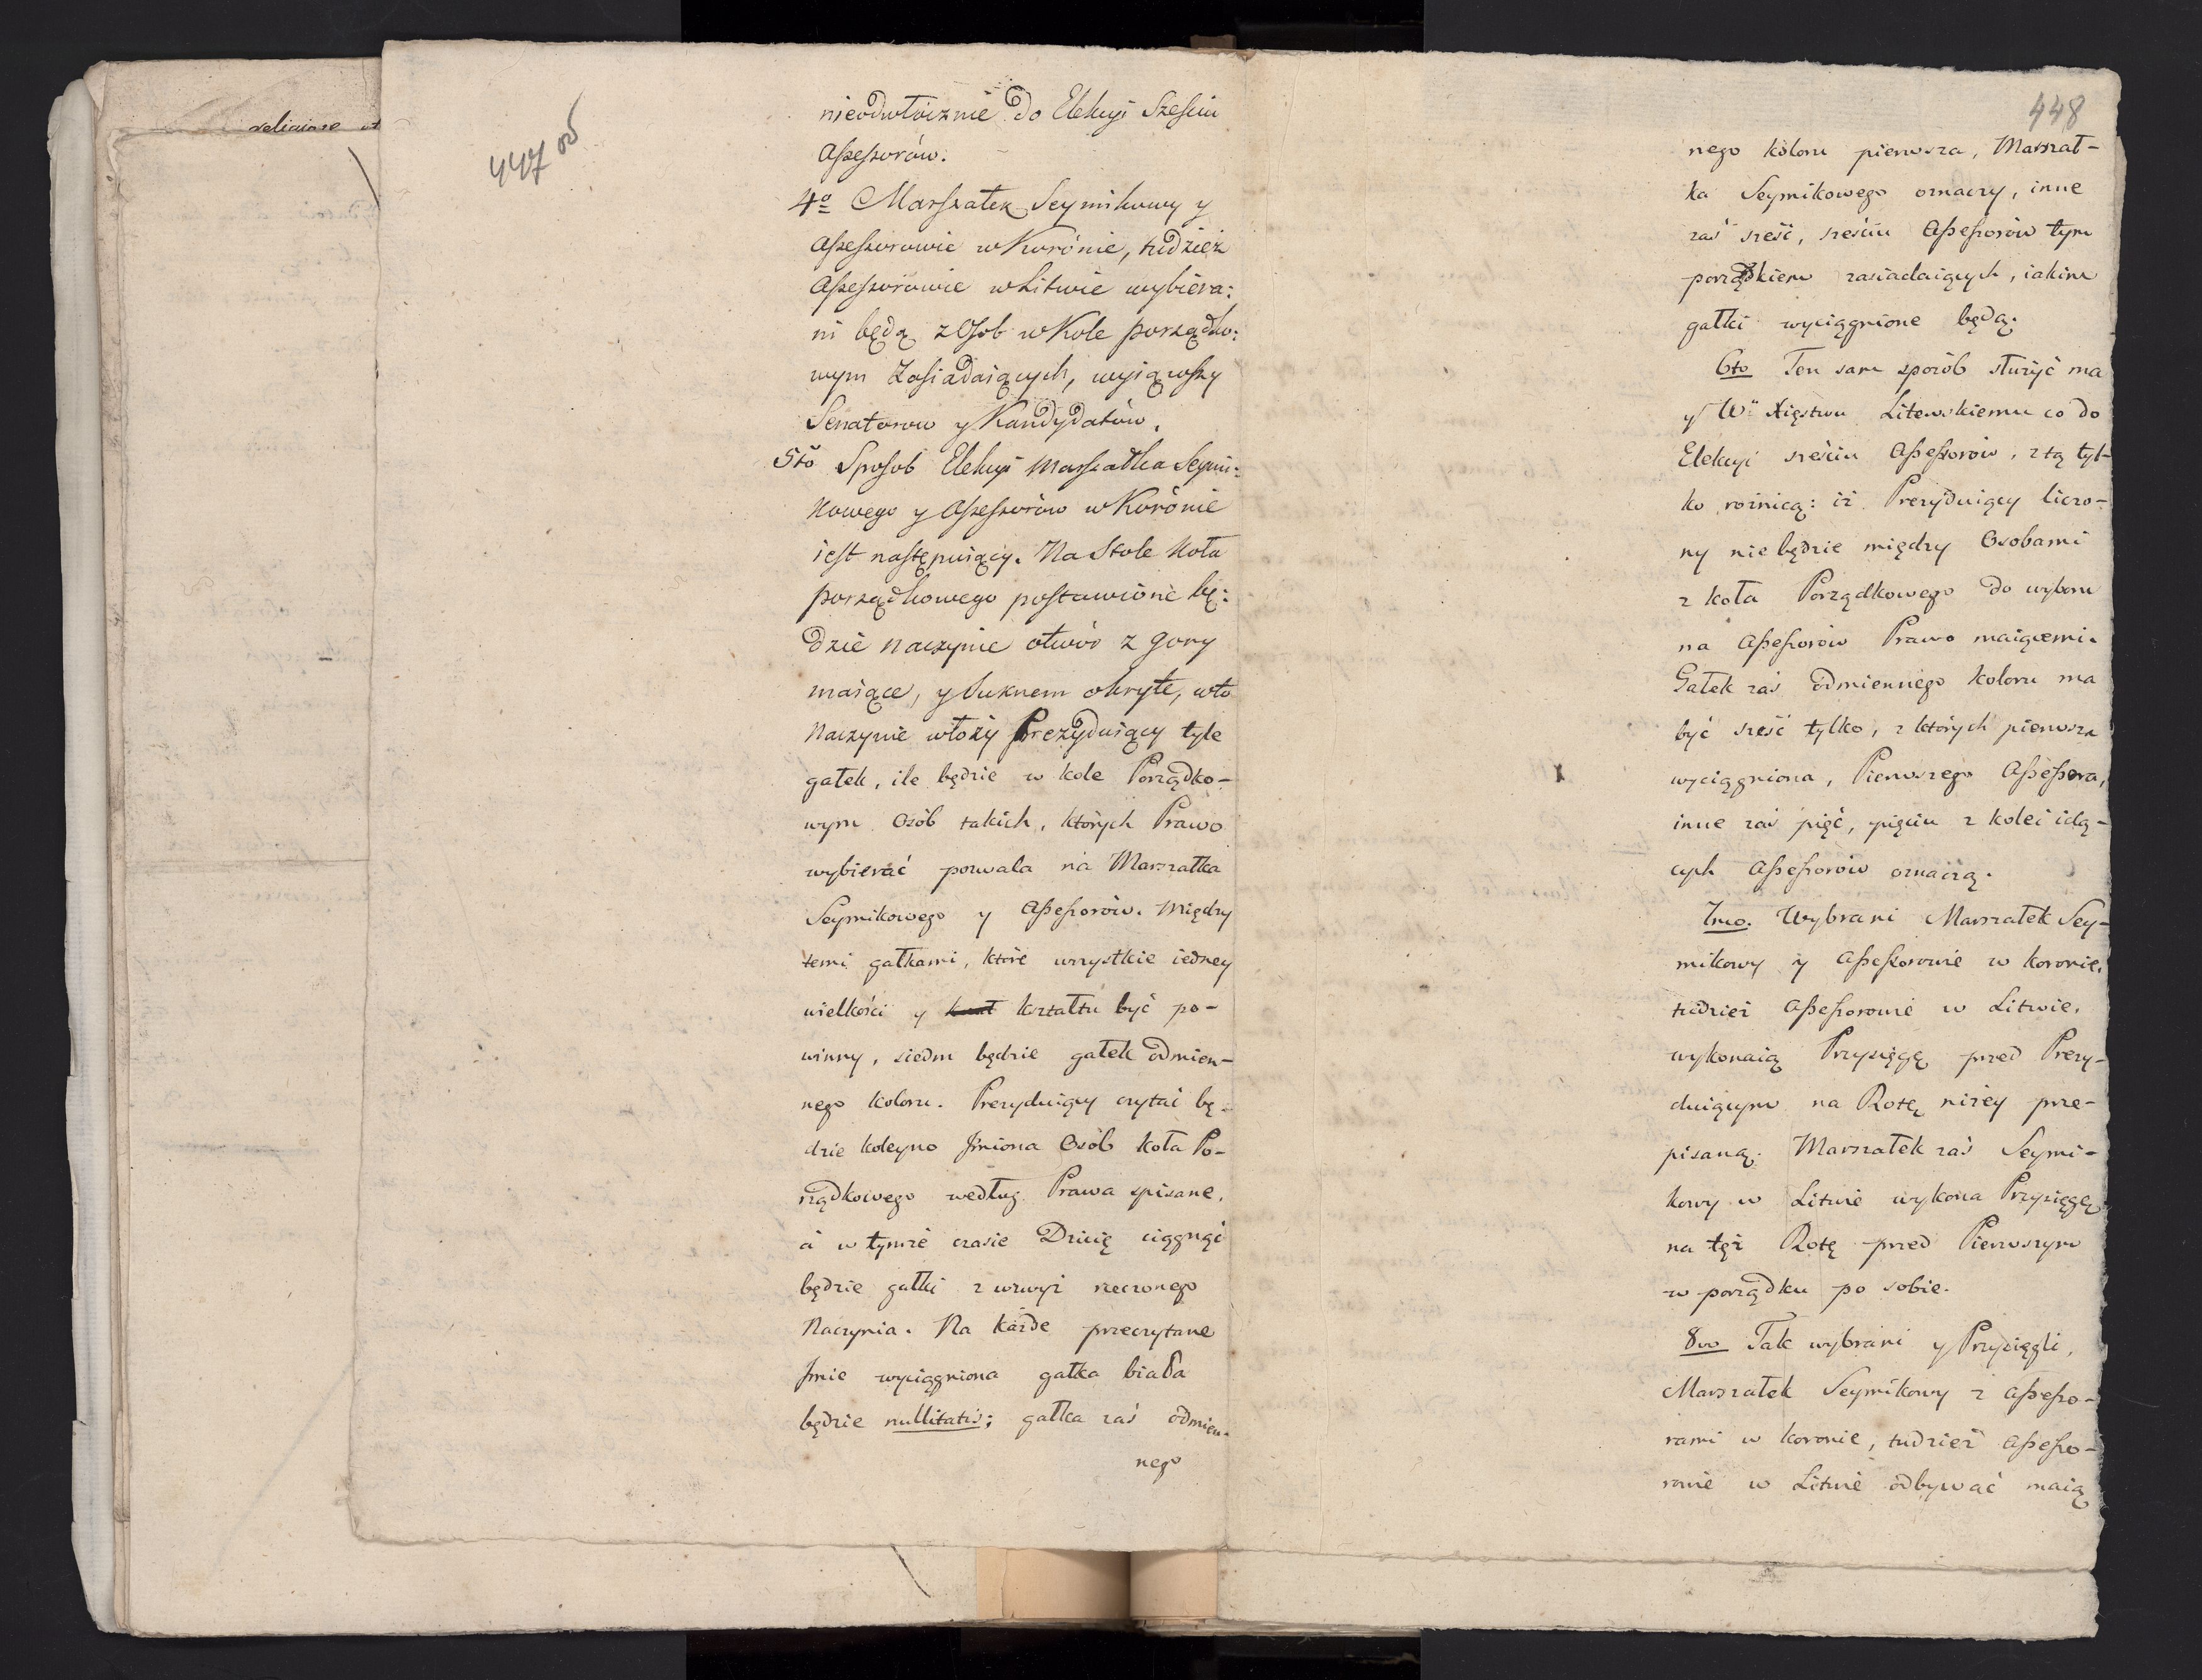 religiose
447 od
nieodwłócznie do Elekcyi Sześciu
Assessorów.
4o Marszałek Seymikowy y
Assessorowie w Korónie, tudzież
Assessorowie w Litwie wybiera:
ni będą z Osob w Kole porządko:
wym Zasiadaiących, wyiąwszy
Senatorow y Kandydatów.
5to Sposob Elekcyi Marszałka Seymi:
kowego y Assessorów w Korónie
iest następuiący. Na Stole Koła
porządkowego postawione bę:
dzie naczynie otwór z gory
maiące, y suknem okryte, w to
naczynie włoży Prezyduiący tyle
gałek, ile będzie w kole Porządko-
wym Osób takich, których Prawo
wybierać pozwala na Marszałka
Seymikowego y Assessorów. Między
temi gałkami, które wszystkie iedney
wielkości y kształtu być po-
winny, siedm będzie gałek odmien-
nego koloru. Prezyduiący czytać bę-
dzie koleyno Jmiona Osób koła Po-
rządkowego według Prawa spisane,
a w tymże czasie Dziecię ciągnąć
będzie gałki z wzwyż rzeczonego
Naczynia. Na każde przeczytane
Jmie wyciągniona gałka biała
będzie nullitatis; gałka zaś odmien-
nego
448
nego koloru pierwsza, Marszał-
ka Seymikowego oznaczy, inne
zaś sześć, sześciu Assessorów tym
porządkiem zasiadaiących, iakim
gałki wyciągnione będą.
6to Ten sam sposób służyć ma
y W. Xięstwu Litewskiemu co do
Elekcyi sześciu Assessorów, z tą tyl-
ko rożnicą: iż Prezyduiący liczo-
ny nie będzie między Osobami
z koła Porządkowego do wyboru
na Assessorów Prawo maiącemi.
Gałek zaś odmiennego koloru ma
być sześć tylko, z których pierwsza
wyciągniona, Pierwszego Assessora,
inne zaś pięć, pięciu z kolei idą-
cych Assessorów oznaczą.
7mo. Wybrani Marszałek Sey-
mikowy y Assessorowie w koronie,
tudzież Assessorowie w Litwie,
wykonaią Przysięgę przed Prezy-
duiącym na Rotę niżey prze-
pisaną. Marszałek zaś Seymi-
kowy w Litwie wykona Przysięgę
na tęż Rotę przed Pierwszym
w porządku po sobie.
8vo Tak wybrani y Przysięgli,
Marszałek Seymikowy z Assesso-
rami w koronie, tudzież Assesso-
rowie w Litwie odbywać maią